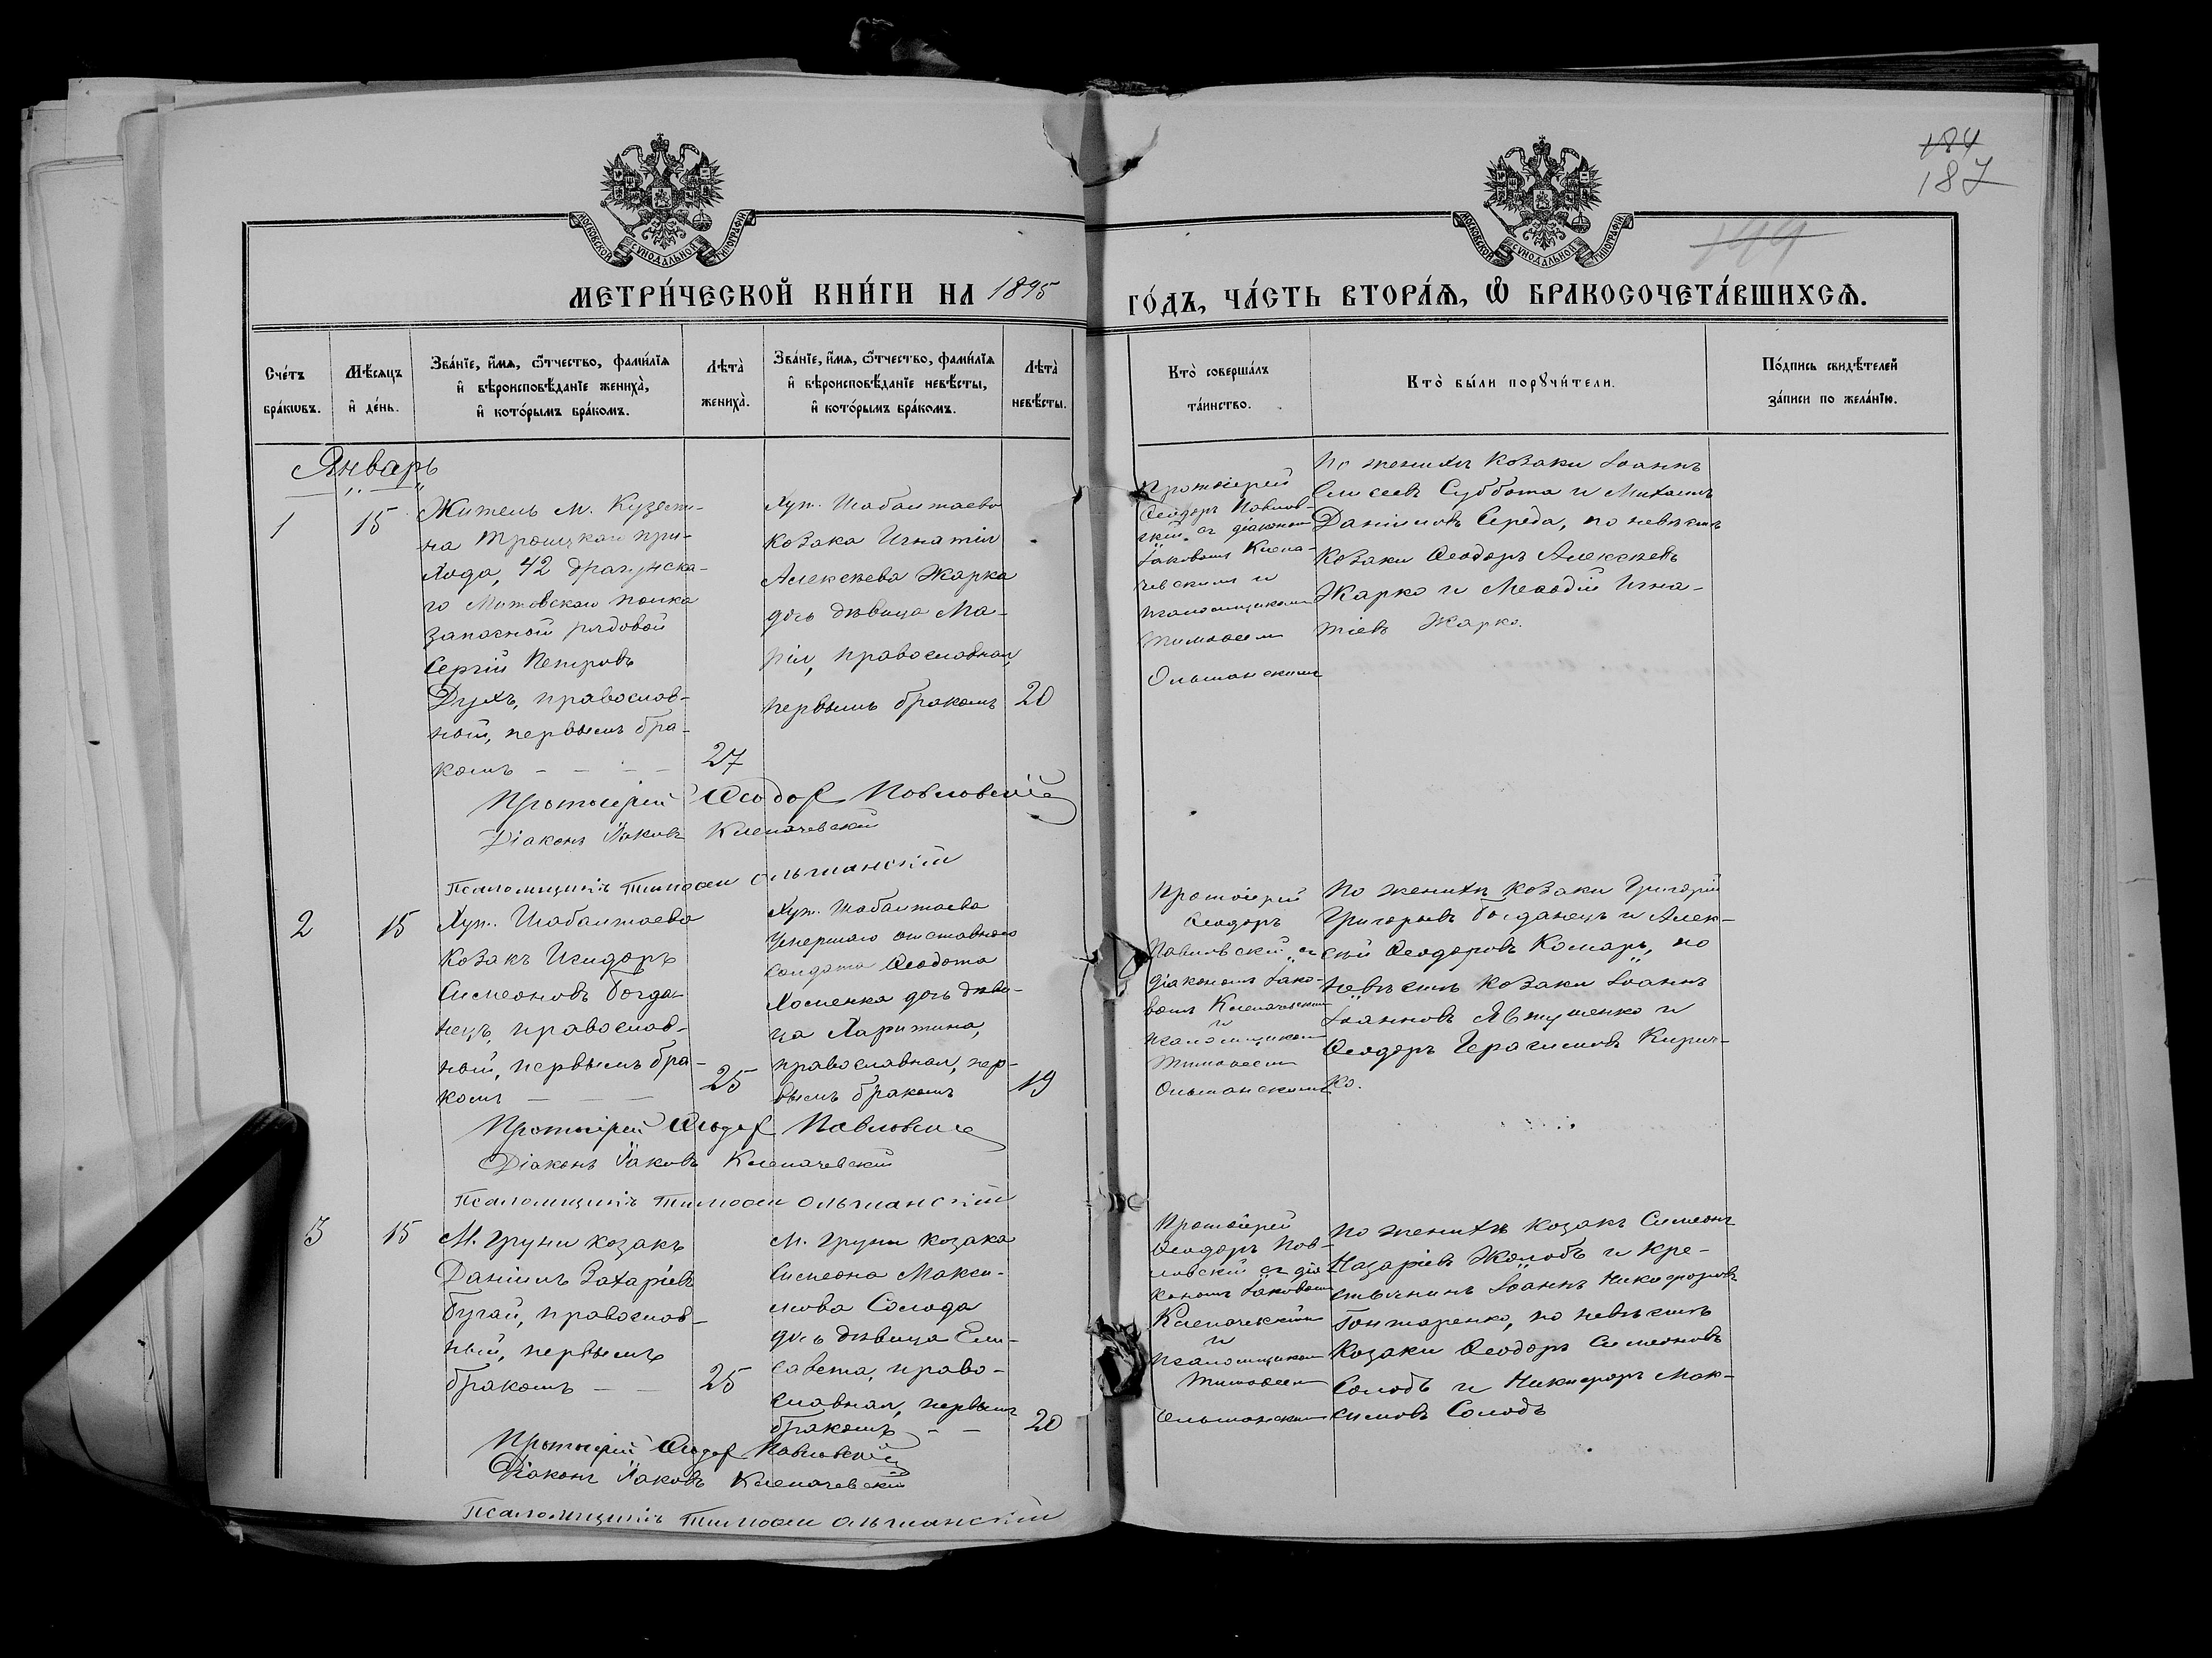 184
187
199
МОСКОВСКОЙ СѴНОДАЛЬНОЙ ТИПОГРАФІИ
МОСКОВСКОЙ СѴНОДАЛЬНОЙ ТИПОГРАФІИ
МЕТРИ́ЧЕСКОЙ КНИ́ГИ НА 1895
ГО́ДЪ, ЧА́СТЬ ВТОРА́Я, Ѡ БРАКОСОЧЕТА́ВШИХСЯ.
Сче́тъ
бра́кѡвъ.
Мѣ́сяцъ
и҆ де́нь.
Зва́нїе, и҆́мя, ѻ҆́тчество, фами́лїя
и҆ вѣроисповѣ́данїе жениха̀,
и҆ кото́рымъ бра́комъ.
Лѣта̀
жениха̀.
Зва́нїе, и҆́мя, ѻ҆́тчество, фами́лїя
и҆ вѣроисповѣ́данїе невѣ́сты,
и҆ кото́рымъ бра́комъ.
Лѣта̀
невѣ́сты.
Кто̀ соверша́лъ
та́инство.
Кто̀ бы́ли порꙋчи́тели.
По́дпись свидѣ́телей
за́писи по жела́нїю.
Январь
1
15
Житель М. Куземи-
на Троицкаго при-
хода, 42 драгунска-
го Митовскаго полка
запасной рядовой
Сергій Петровъ
Духъ, православ-
ный, первымъ бра-
комъ - - - -
27
Хут. Шабалтаева
козака Игнатія
Алексѣева Жарка
дочь дѣвица Ма-
рія, православная,
первымъ бракомъ
20
Протоіерей
Ѳеодоръ Павлов-
скій съ діакономъ
Іаковомъ Клепа-
чевскимъ и
псаломщикомъ
Тимоѳеемъ
Ольшанскимъ
По женихѣ козаки Іоаннъ
Елисеевъ Суббота и Михаилъ
Даніиловъ Середа, по невѣстѣ
козаки Ѳеодоръ Алексѣевъ
Жарко и Меѳодій Игна-
тіевъ Жарко.
Протоіерей Ѳеодоръ Павловскій
Діаконъ Іаковъ Клепачевскій
Псаломщикъ Тимоѳей Ольшанскій
2
15
Хут. Шабалтаева
козакъ Исидоръ
Симеоновъ Богда-
нецъ, православ-
ный, первымъ бра-
комъ - - -
25
Хут. Шабалтаева
умершаго отставнаго
солдата Ѳеодота
Хоменка дочь дѣви-
ца Харитина,
православная, пер-
вымъ бракомъ
19
Протоіерей
Ѳеодоръ
Павловскій съ
діакономъ Іако-
вомъ Клепачевскимъ
и
псаломщикомъ
Тимоѳеемъ
Ольшанскимъ
По женихѣ козаки Григорій
Григорьевъ Богданецъ и Алек-
сѣй Ѳеодоровъ Комаръ, по
невѣстѣ козаки Іоаннъ
Іоанновъ Явтушенко и
Ѳеодоръ Герасимовъ Кирич-
ко.
Протоіерей Ѳеодоръ Павловскій
Діаконъ Іаковъ Клепачевскій
Псаломщикъ Тимоѳей Ольшанскій
3
15
М. Груни козакъ
Даніилъ Захаріевъ
Бугай, православ-
ный, первымъ
бракомъ - -
25
М. Груни козака
Симеона Макси-
мова Солода
дочь дѣвица Ели-
савета, право-
славная, первымъ
бракомъ - -
20
Протоіерей
Ѳеодоръ Пав-
ловскій съ діа-
кономъ Іаковомъ
Клепачевскимъ
и
псаломщикомъ
Тимоѳеемъ
Ольшанскимъ
По женихѣ козакъ Симеонъ
Назаріевъ Жолобъ и кре-
стьянинъ Іоаннъ Никифоровъ
Гонтаренко, по невѣстѣ
козаки Ѳеодоръ Симеоновъ
Солодъ и Никифоръ Мак-
симовъ Солодъ
Протоіерей Ѳеодоръ Павловскій
Діаконъ Іаковъ Клепачевскій
Псаломщикъ Тимоѳей Ольшанскій